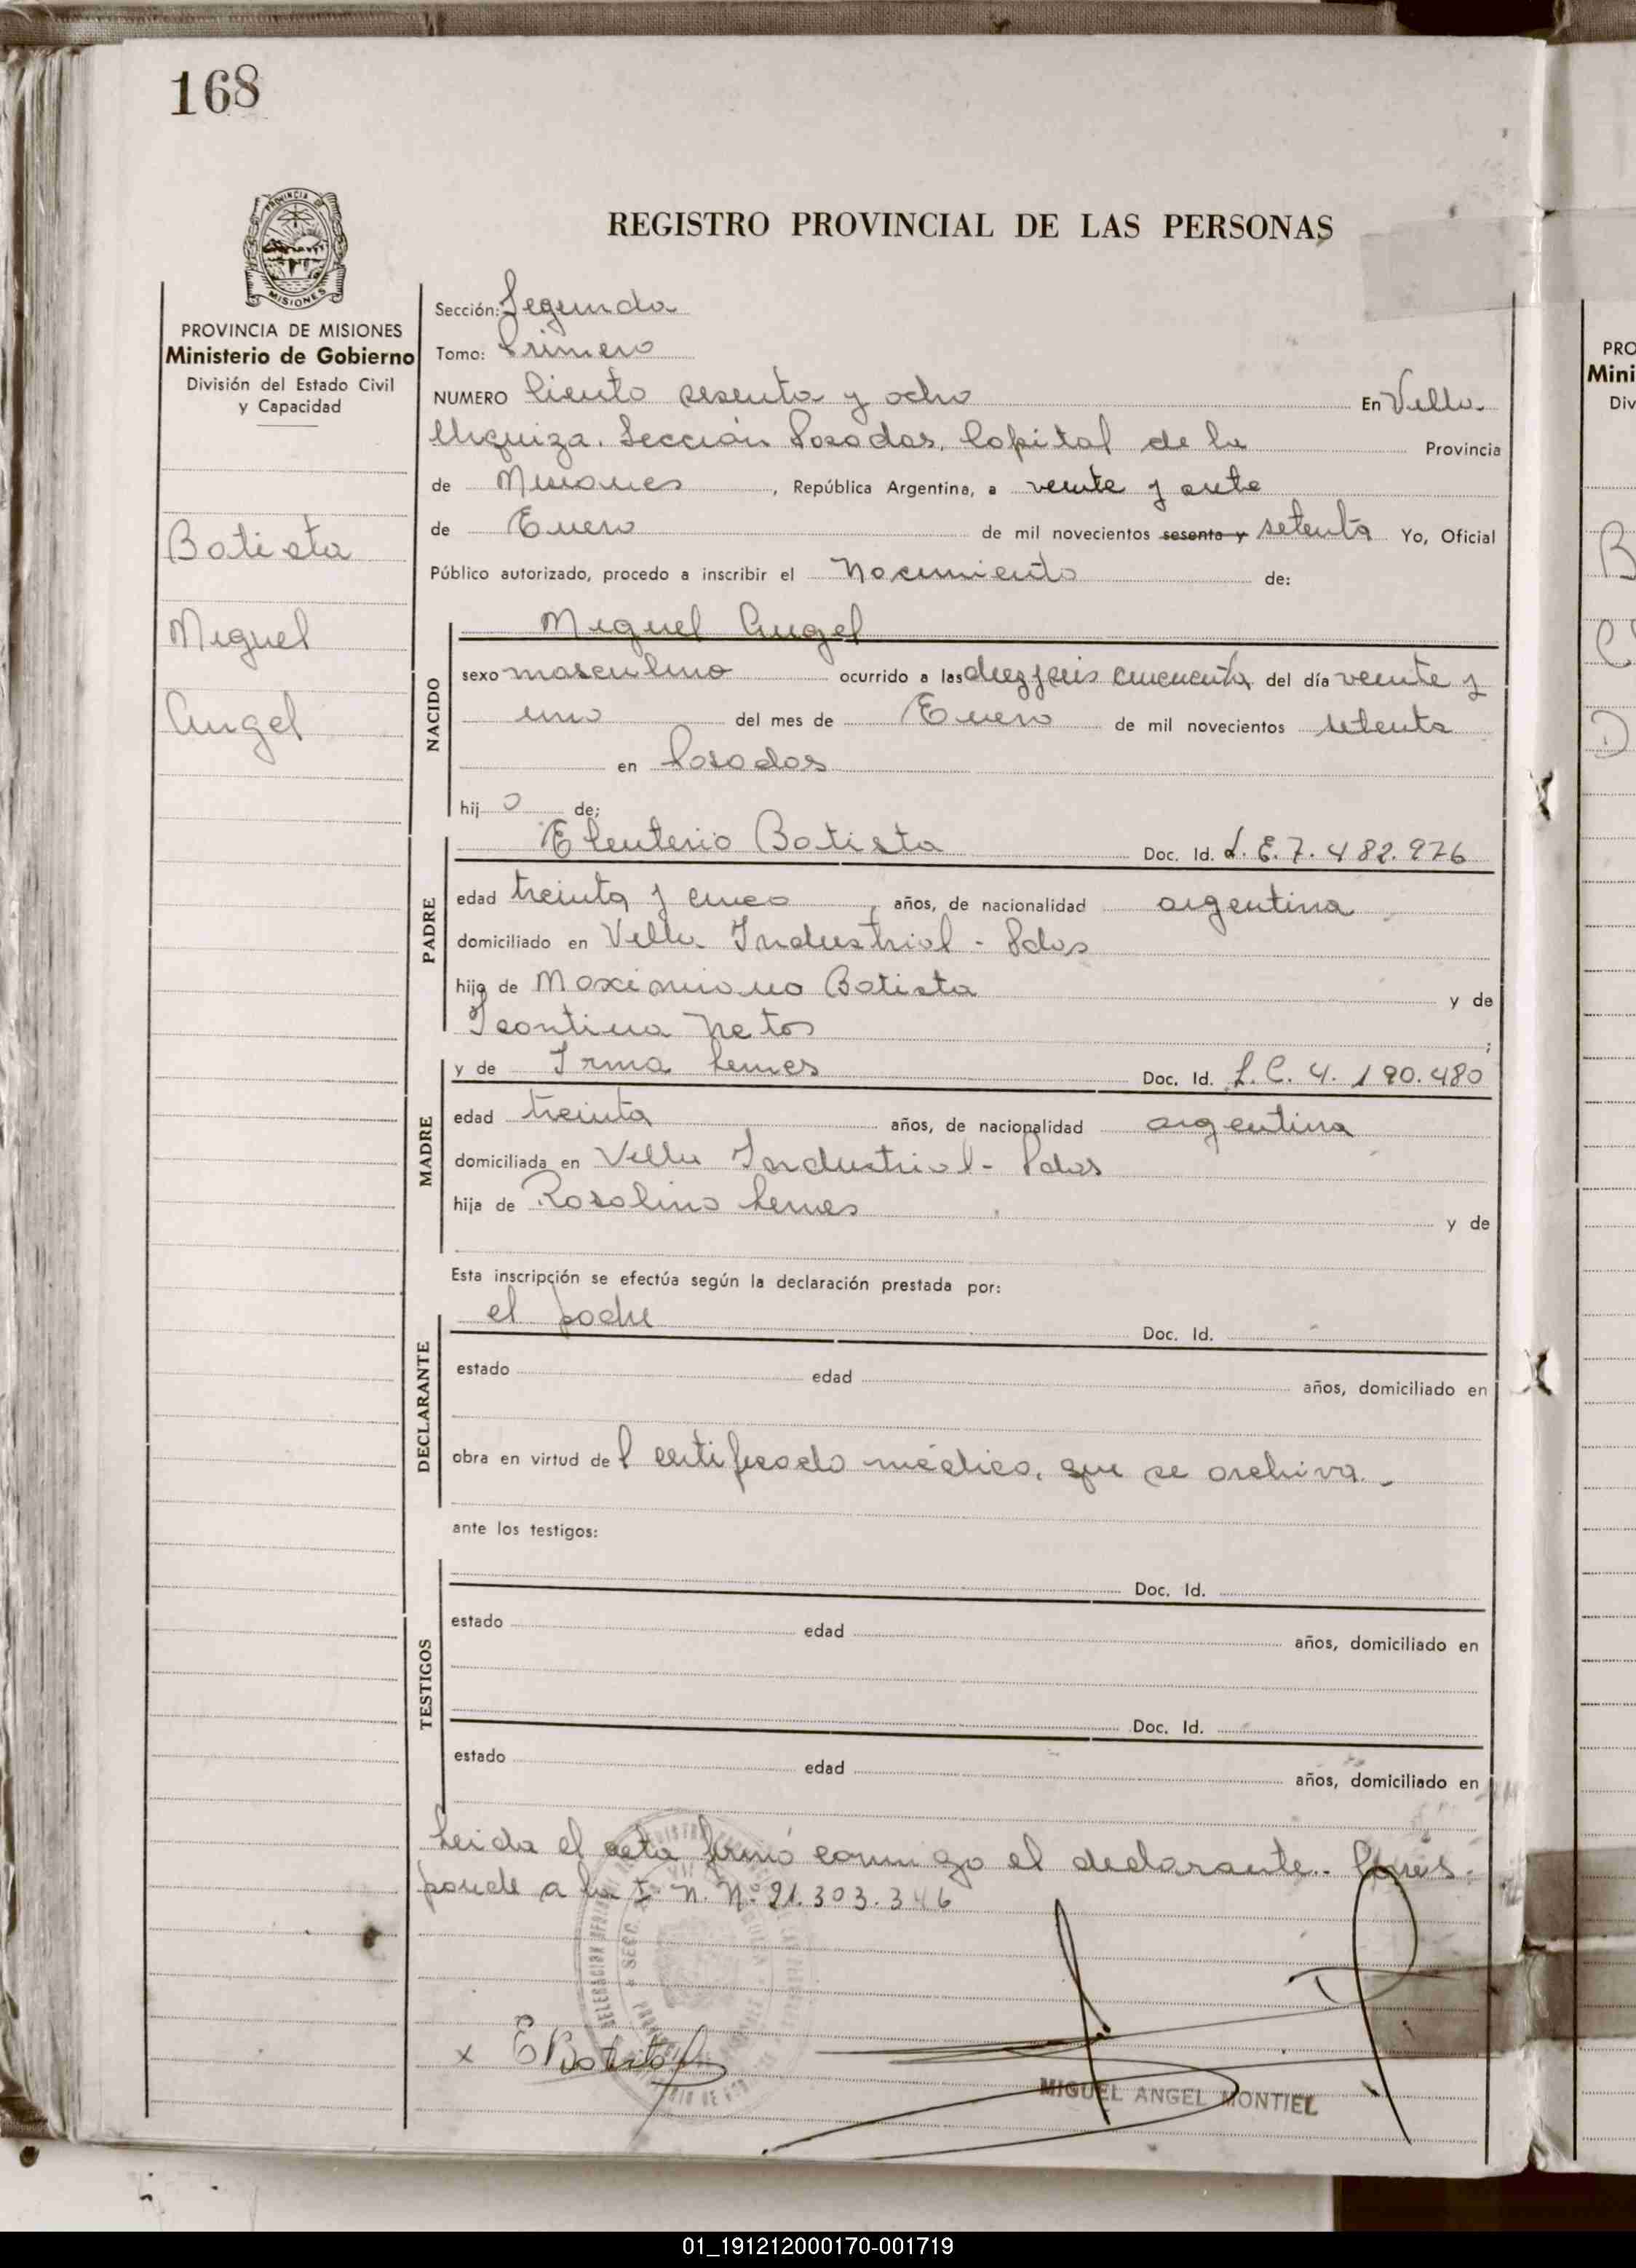 168
PROVINCIA DE
MISIONES
REGISTRO PROVINCIAL DE LAS PERSONAS
PROVINCIA DE MISIONES
Ministerio de Gobierno
División del Estado Civil
y Capacidad
Batista
Miguel
Angel
Sección: Segunda
Tomo: Primero
NUMERO Ciento sesenta y ocho En Villa
Urquiza. Sección Posadas, Capital de la Provincia
de Misiones, República Argentina, a veinte y siete
de Enero de mil novecientos sesenta y setenta Yo, Oficial
Público autorizado, procedo a inscribir el Nacimiento de:
Miguel Angel
NACIDO
sexo masculino ocurrido a las diez y seis cincuenta del día veinte y
uno del mes de Enero de mil novecientos setenta
en Posadas
hijo de:
PADRE
Eleuterio Batista Doc. Id. L.E.7.482.976
edad treinta y cinco, años, de nacionalidad argentina
domiciliado en Villa Industrial - Pdas
hijo de Maximiano Batista y de
Leontina Netos ;
MADRE
y de Irma Lemes Doc. Id. L.C. 4.190.480
edad treinta años, de nacionalidad argentina
domiciliada en Villa Industrial - Pdas
hija de Rosalino Lemes y de
Esta inscripción se efectúa según la declaración prestada por:
DECLARANTE
el padre Doc. Id.
estado edad años, domiciliado en
obra en virtud del certificado médico, que se archiva.-
ante los testigos:
TESTIGOS
Doc. Id.
estado edad años, domiciliado en
Doc. Id.
estado edad años, domiciliado en
Leida el acta firmó conmigo el declarante.. Corres-
ponde a la I. N. Nº 21.303.346
x E Batista
MIGUEL ANGEL MONTIEL
PRO
Mini
Div
B
C
D
01_191212000170-001719